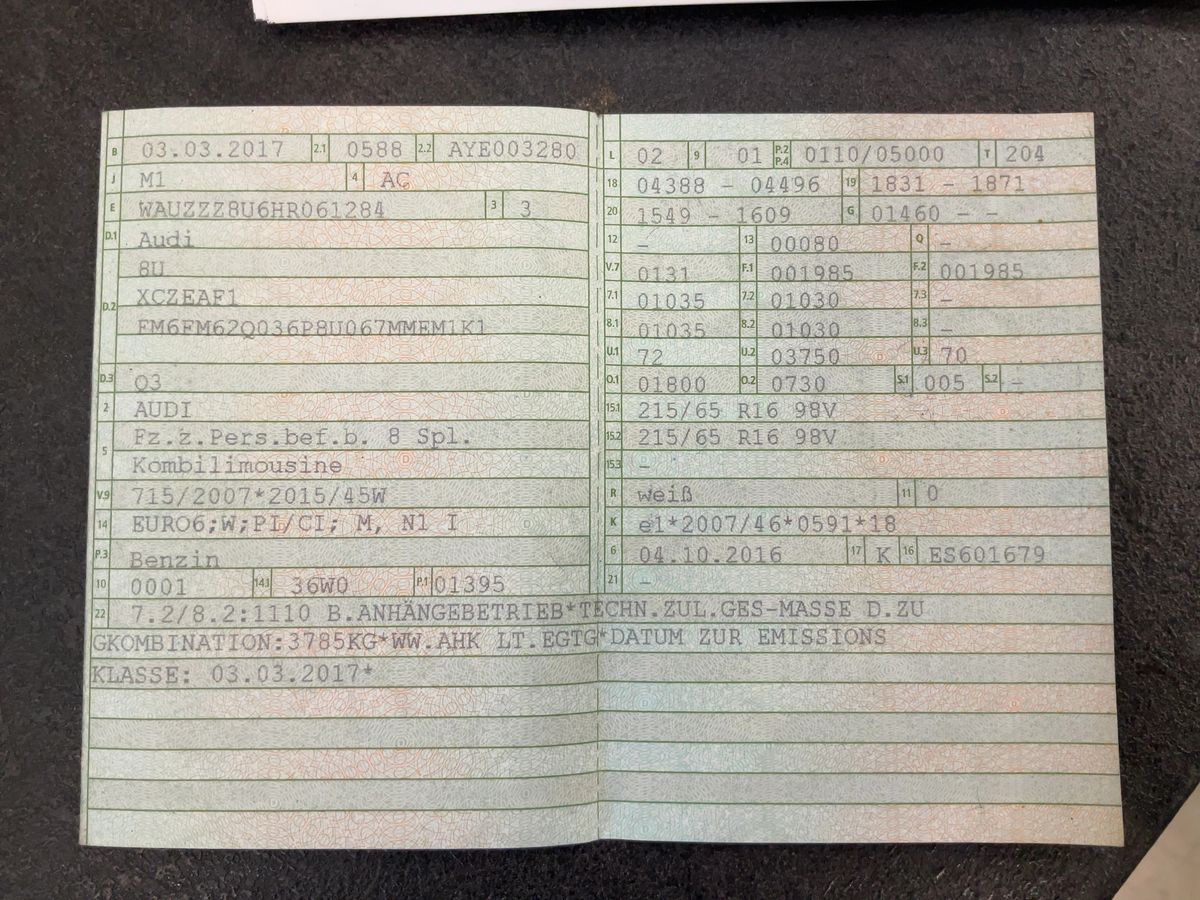 B 03.03.2017 2.1 0588 2.2 AYE003280
J M1 4 AC
E WAUZZZ8U6HR061284 3 3
D.1 Audi
8U
D.2 XCZEAF1
FM6FM62Q036P8U067MMEM1K1
D.3 Q3
2 AUDI
5 Fz.z.Pers.bef.b. 8 Spl.
Kombilimousine
V.9 715/2007*2015/45W
14 EURO6;W;PI/CI; M, N1 I
P.3 Benzin
10 0001 14.1 36W0 P.1 01395
L 02 9 01 P.2 P.4 0110/05000 T 204
18 04388 - 04496 19 1831 - 1871
20 1549 - 1609 G 01460 - -
12 - 13 00080 Q -
V.7 0131 F.1 001985 F.2 001985
7.1 01035 7.2 01030 7.3 -
8.1 01035 8.2 01030 8.3 -
U.1 72 U.2 03750 U.3 70
O.1 01800 O.2 0730 S.1 005 S.2 -
15.1 215/65 R16 98V
15.2 215/65 R16 98V
15.3 -
R weiß 11 0
K e1*2007/46*0591*18
6 04.10.2016 17 K 16 ES601679
21 -
22 7.2/8.2:1110 B.ANHÄNGEBETRIEB*TECHN.ZUL.GES-MASSE D.ZU
GKOMBINATION:3785KG*WW.AHK LT.EGTG*DATUM ZUR EMISSIONS
KLASSE: 03.03.2017*